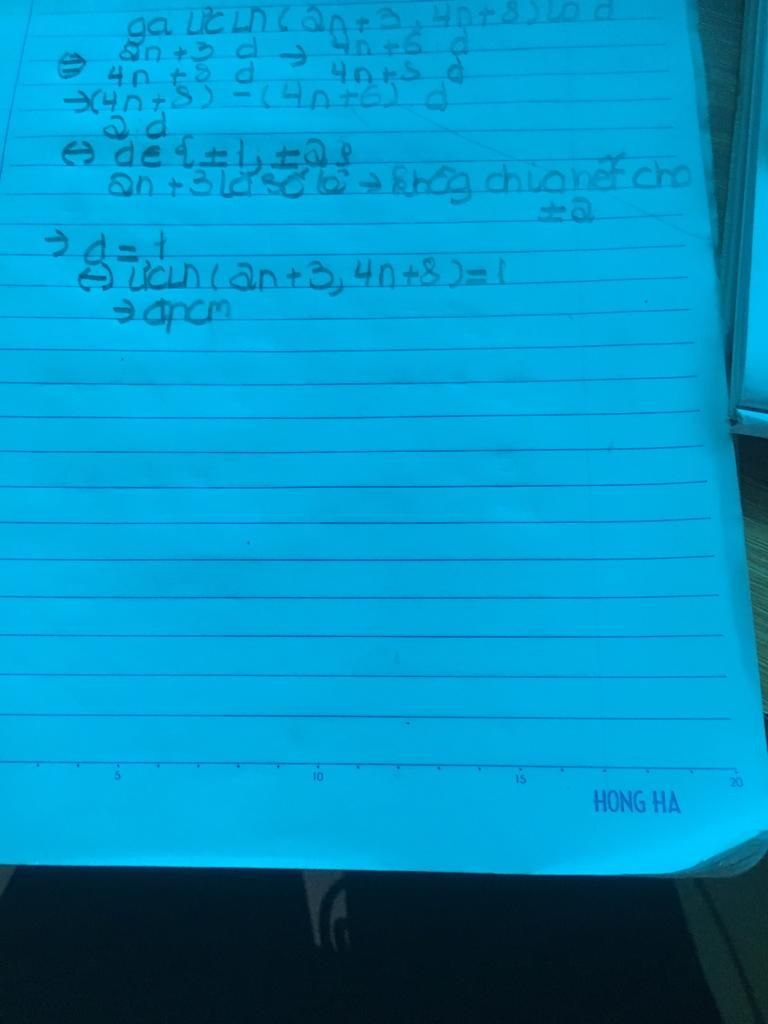 gọi ƯCLN (2n+3, 4n+8) là d
2n+3 d → 4n+6 d
⇔ 4n+8 d 4n+8 d
→(4n+8) -(4n+6) d
2 d
⇔ d∈{±1; ±2}
2n+3 là số lẻ → không chia hết cho
±2
→ d = 1
⇔ ƯCLN (2n+3, 4n+8)=1
→ đpcm
5 10 15 20
HONG HA